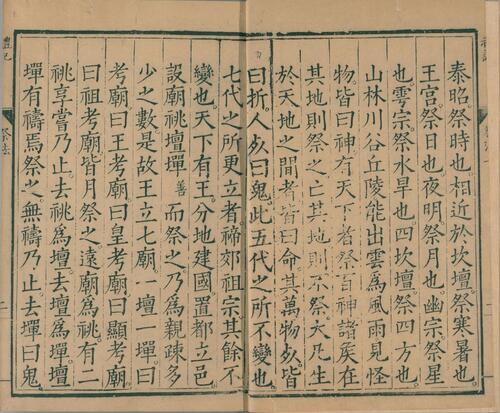 泰昭祭時也相近於坎壇祭寒暑也
王宮祭日也夜明祭月也幽宗祭星
也雩宗祭水旱也四坎壇祭四方也
山林川谷丘陵能出雲爲風雨見怪
物皆曰神有天下者祭百神諸矦在
其地則祭之亡其地則不祭大凡生
於天地之間者皆曰命其萬物死皆
曰折人死曰鬼此五代之所不變也
七代之所更立者禘郊祖宗其餘不
變也天下有王分地建國置都立邑
設廟祧壇墠善而祭之乃爲親疎多
少之數是故王立七廟一壇一墠曰
考廟曰王考廟曰皇考廟曰顯考廟
曰祖考廟皆月祭之遠廟爲祧有二
祧享嘗乃止去祧爲壇去壇爲墠壇
墠有禱焉祭之無禱乃止去墠曰鬼
禮記
祭法
二